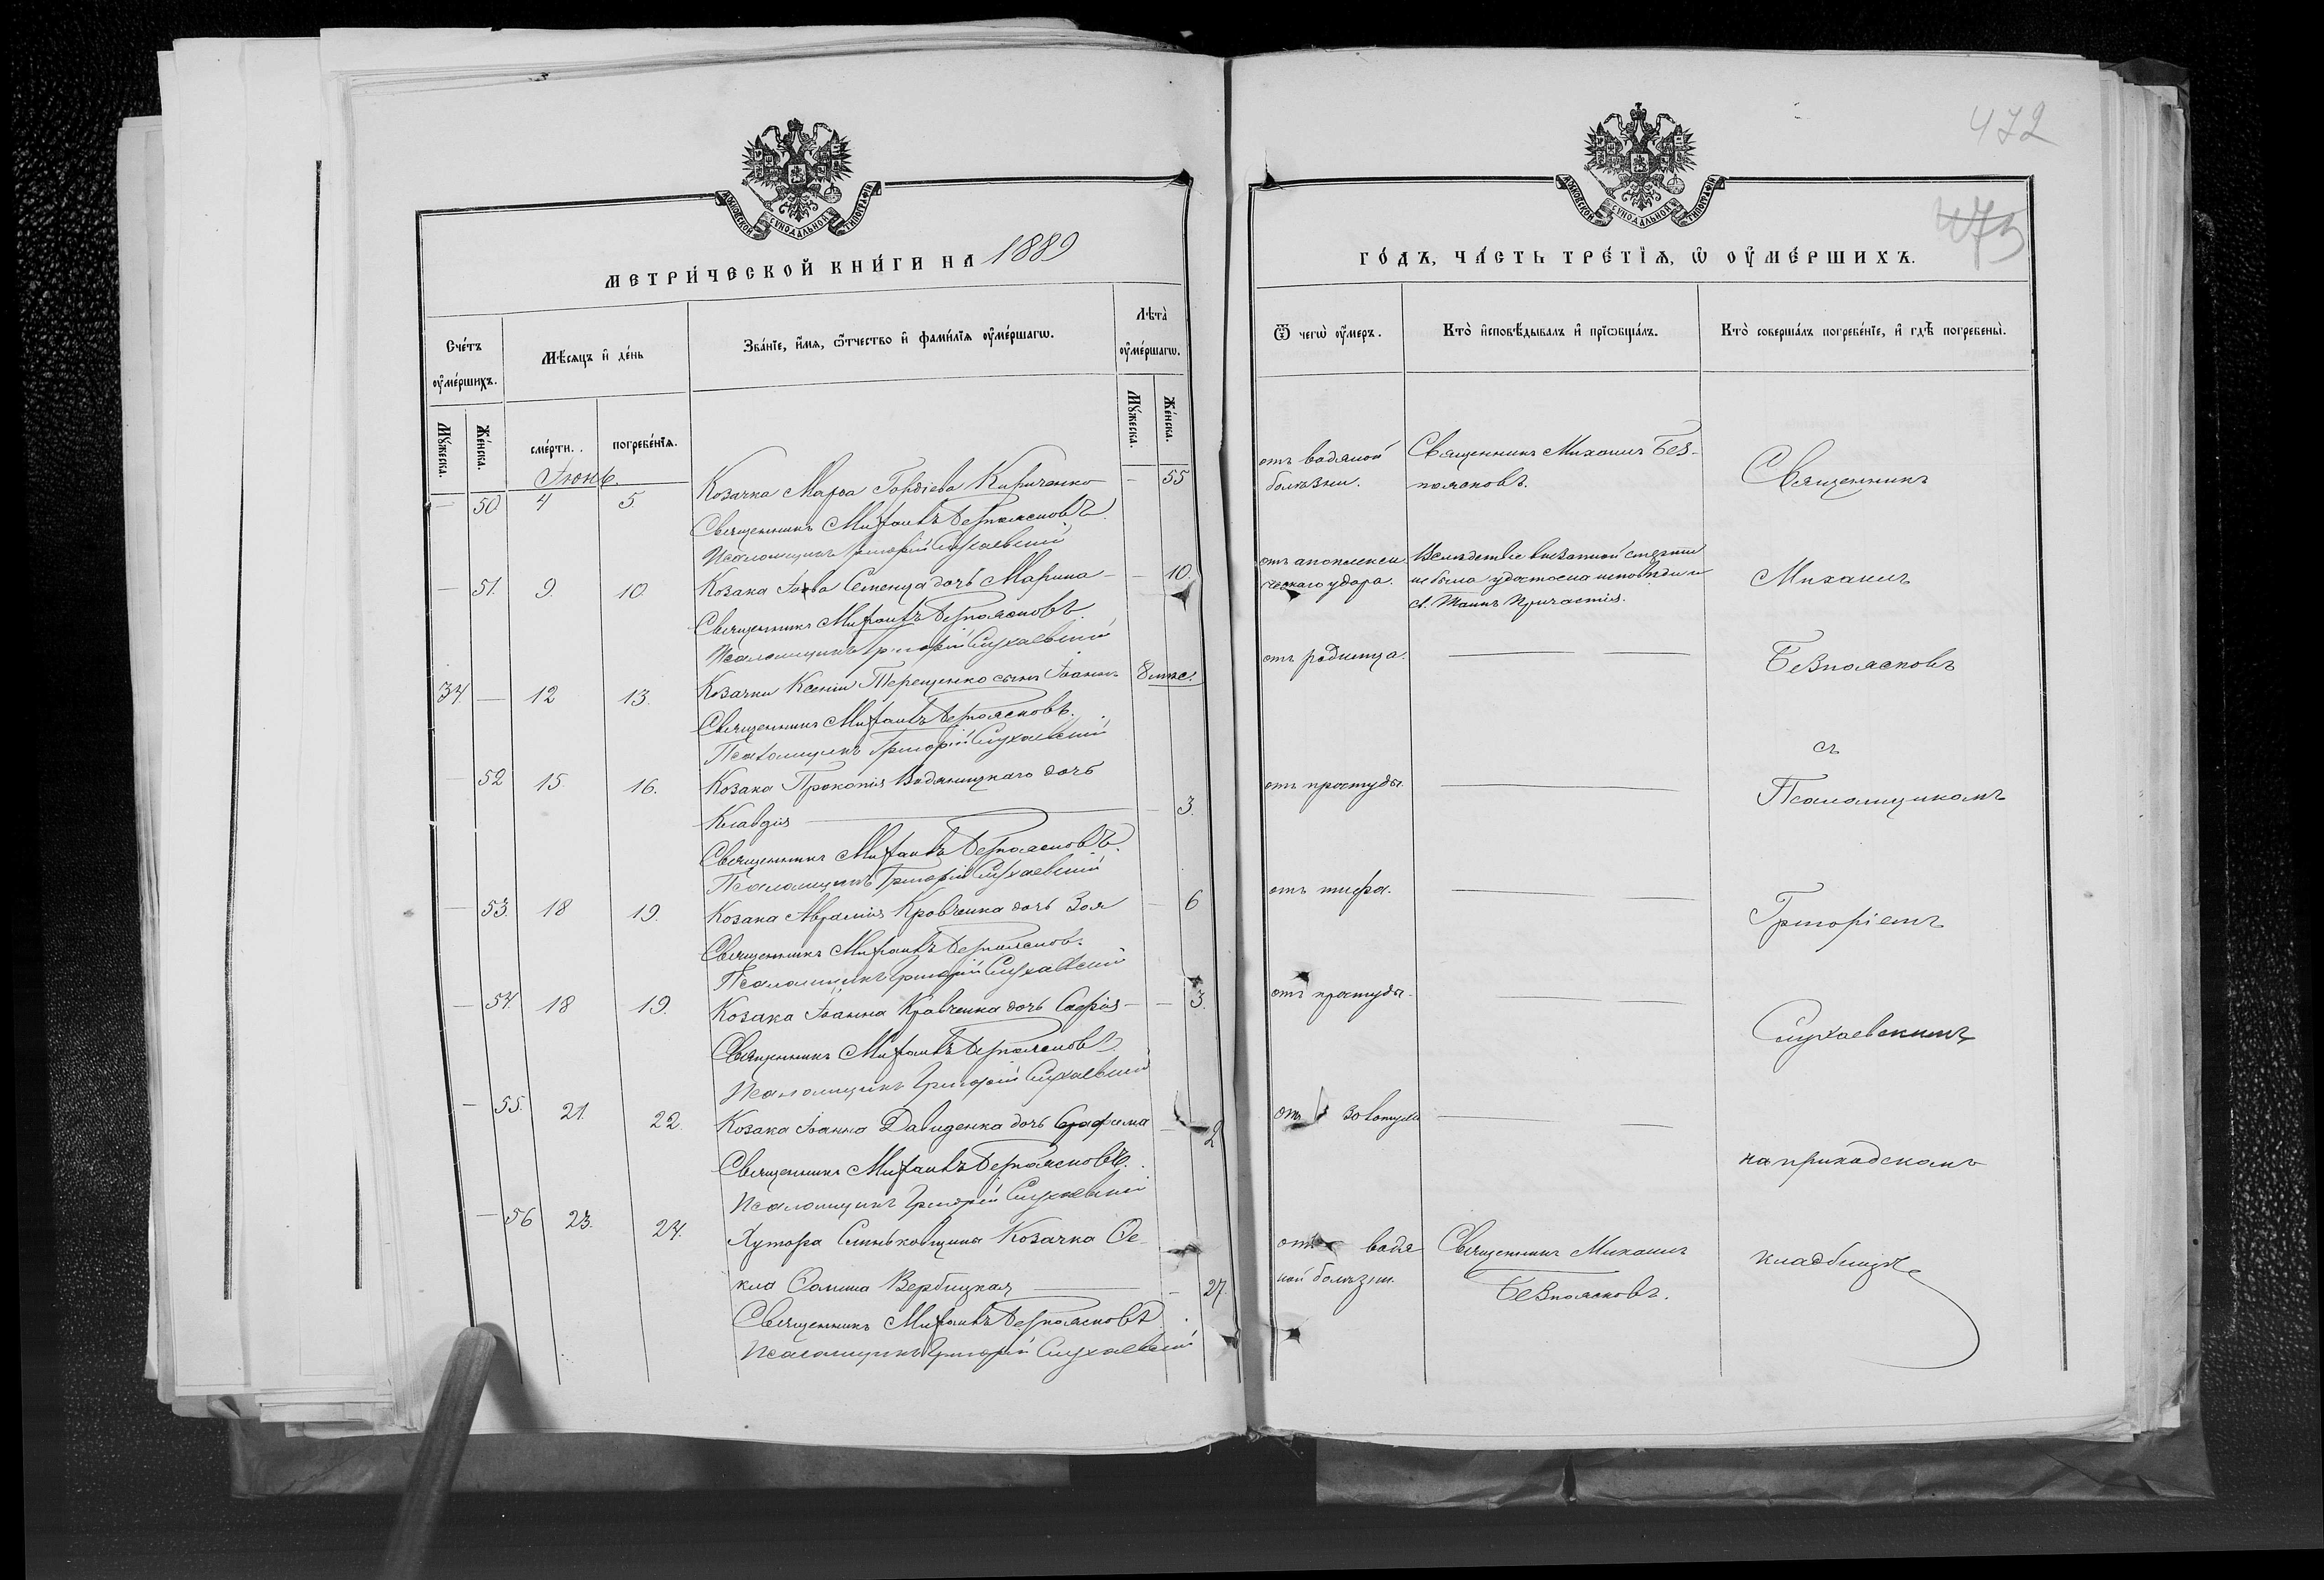 МОСКОВСКОЙ СѴНОДАЛЬНОЙ ТИПОГРАФІИ
МЕТРИ́ЧЕСКОЙ КНИ́ГИ НА 1889
Сче́тъ ᲂу҆ме́ршихъ.
Мѣ́сяцъ и҆ де́нь
Зва́нїе, и҆́мя, ѻ҆́тчество и҆ фами́лїя ᲂу҆ме́ршагѡ.
Лѣта̀ ᲂу҆ме́ршагѡ.
Мꙋ́жеска.
Же́нска.
сме́рти.
погребе́нїѧ.
Мꙋ́жеска.
Же́нска.
Іюнь.
— 50. 4 5. Козачка Марѳа Гордіева Кириченко — 55
Священникъ Михаилъ Безпоясковъ
Псаломщикъ Григорій Слухаевскій
— 51. 9. 10 Козака Іова Семенца дочь Марина — — 10.
Священникъ Михаилъ Безпоясковъ.
Псаломщикъ Григорій Слухаевскій
34. — 12 13. Козачки Ксеніи Терещенко сынъ Іоаннъ 8 мѣс.
Священникъ Михаилъ Безпоясковъ.
Псаломщикъ Григорій Слухаевскій
— 52 15. 16. Козака Прокопія Водяницкаго дочь
Клавдія — — 3.
Священникъ Михаилъ Безпоясковъ.
Псаломщикъ Григорій Слухаевскій
— 53. 18 19. Козака Аврамія Кравченка дочь Зоя — 6
Священникъ Михаилъ Безпоясковъ.
Псаломщикъ Григорій Слухаевскій
— 54. 18 19. Козака Іоанна Кравченка дочь Софія — — 3.
Священникъ Михаилъ Безпоясковъ.
Псаломщикъ Григорій Слухаевскій
— 55. 21. 22. Козака Іоанна Давиденка дочь Серафима — 2
Священникъ Михаилъ Безпоясковъ.
Псаломщикъ Григорій Слухаевскій
— 56 23. 24. Хутора Козачка Ѳе-
кла Ѳомина Вербицкая — — 27.
Священникъ Михаилъ Безпоясковъ
Псаломщикъ Григорій Слухаевскій
472
475
МОСКОВСКОЙ СѴНОДАЛЬНОЙ ТИПОГРАФІИ
ГО́ДЪ, ЧА́СТЬ ТРЕ́ТЇѦ, Ѡ҆ ОУ҆МЕ́РШИХЪ.
Ѿ чегѡ̀ ᲂу҆́меръ.
Кто̀ и҆сповѣ́дывалъ и҆ прїѡбща́лъ.
Кто̀ соверша́лъ погребе́нїе, и҆ гдѣ̀ погребены̀.
отъ водяной Священникъ Михаилъ Без-
болѣзни. поясковъ.
Священникъ
отъ апоплекси- Вслѣдствіе внезапной смерти
ческаго удара. не была удостоена исповѣди и
св. Таинъ Причастія.
Михаилъ
отъ родимца. — —
Безпоясковъ
съ
отъ простуды. —
Псаломщикомъ
отъ тифа. — —
Григоріемъ
отъ простуды. — —
Слухаевскимъ
отъ золотухи — —
на приходскомъ
отъ водя- Священникъ Михаилъ
ной болѣзни. Безпоясковъ.
кладбищѣ